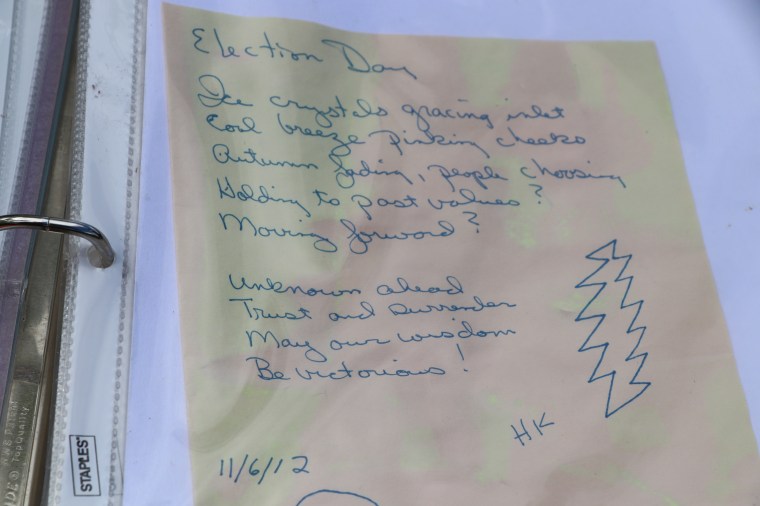 Election Day
Ice crystals gracing inlet
Cool breeze pinking cheeks
Autumn fading, people choosing
Holding to past values?
Moving forward?
Unknown ahead
Trust and surrender
May our wisdom
Be victorious!
HK
11/6/12
STAPLES
Top Quality